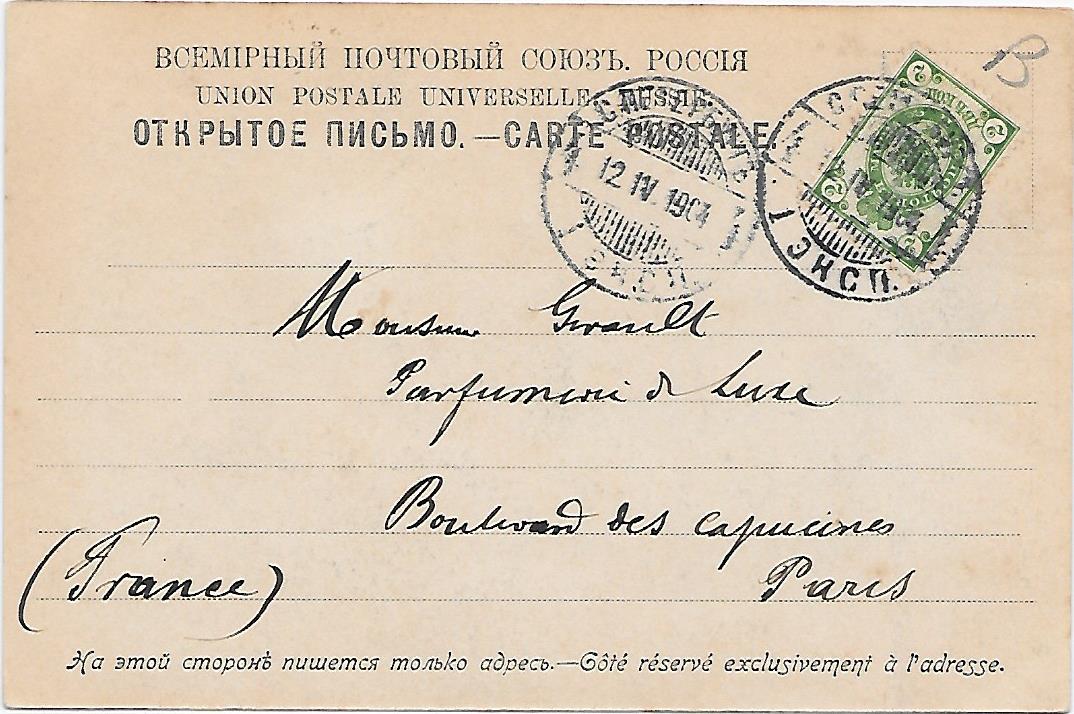 ВСЕМІРНЫЙ ПОЧТОВЫЙ СОЮЗЪ. РОССІЯ
UNION POSTALE UNIVERSELLE. RUSSIE.
ОТКРЫТОЕ ПИСЬМО. — CARTE POSTALE.
B
12.IV.1904
1 ЭКСП.
12.IV.1904
1 ЭКСП.
2
2
2
Monsieur Girault
Parfumerie de Luxe
Boulevard des Capucines
Paris
(France)
На этой сторонѣ пишется только адресъ.—Côté réservé exclusivement à l'adresse.